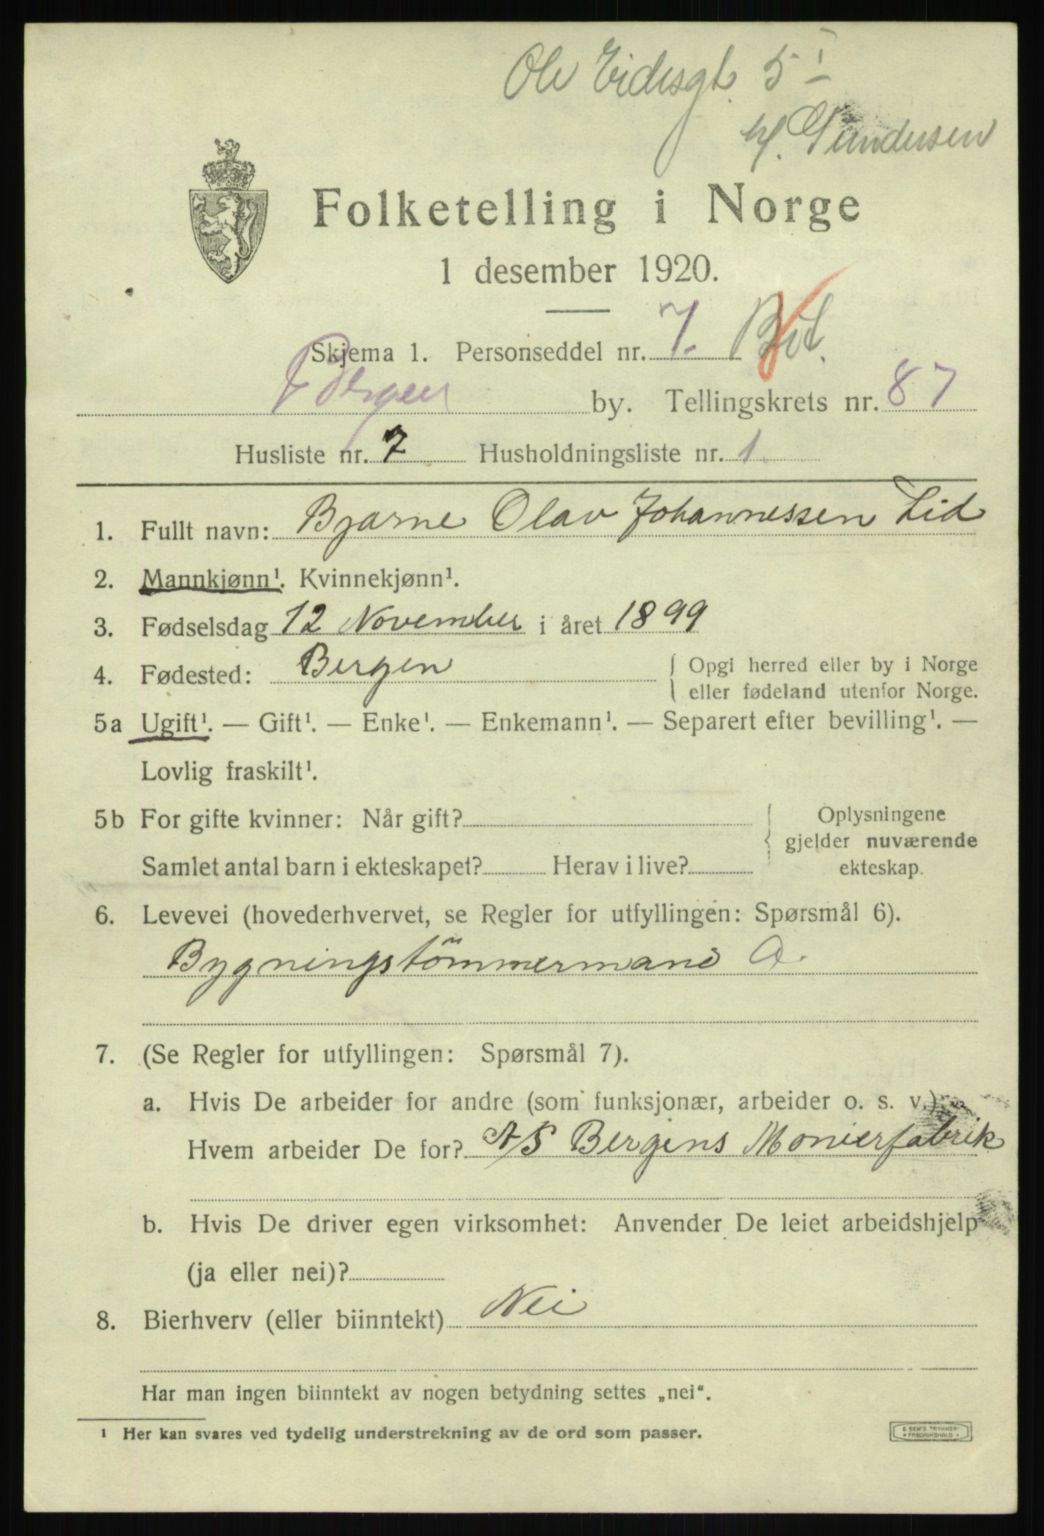 Ole Eidesgt. 5 I
Gundersen
Folketelling i Norge
1 desember 1920.
Skjema 1. Personseddel nr. 7.
Bergen by. Tellingskrets nr. 87
Husliste nr. 7 Husholdningsliste nr. 1.
1. Fullt navn: Bjarne Olav Johannessen Lid
2. Mannkjønn¹. Kvinnekjønn¹.
3. Fødselsdag 12 November i året 1899
4. Fødested: Bergen { Opgi herred eller by i Norge
eller fødeland utenfor Norge.
5a Ugift¹. — Gift¹. — Enke¹. — Enkemann¹. — Separert efter bevilling¹. —
Lovlig fraskilt¹.
5b For gifte kvinner: Når gift? { Oplysningene
gjelder nuværende
Samlet antal barn i ekteskapet? Herav i live? ekteskap.
6. Levevei (hovederhvervet, se Regler for utfyllingen: Spørsmål 6).
Bygningstömmermand a.
7. (Se Regler for utfyllingen: Spørsmål 7).
a. Hvis De arbeider for andre (som funksjonær, arbeider o. s. v.):
Hvem arbeider De for? A/S Bergens Monierfabrik
b. Hvis De driver egen virksomhet: Anvender De leiet arbeidshjelp
(ja eller nei)?
8. Bierhverv (eller biinntekt) Nei
Har man ingen biinntekt av nogen betydning settes „nei“.
¹ Her kan svares ved tydelig understrekning av de ord som passer.